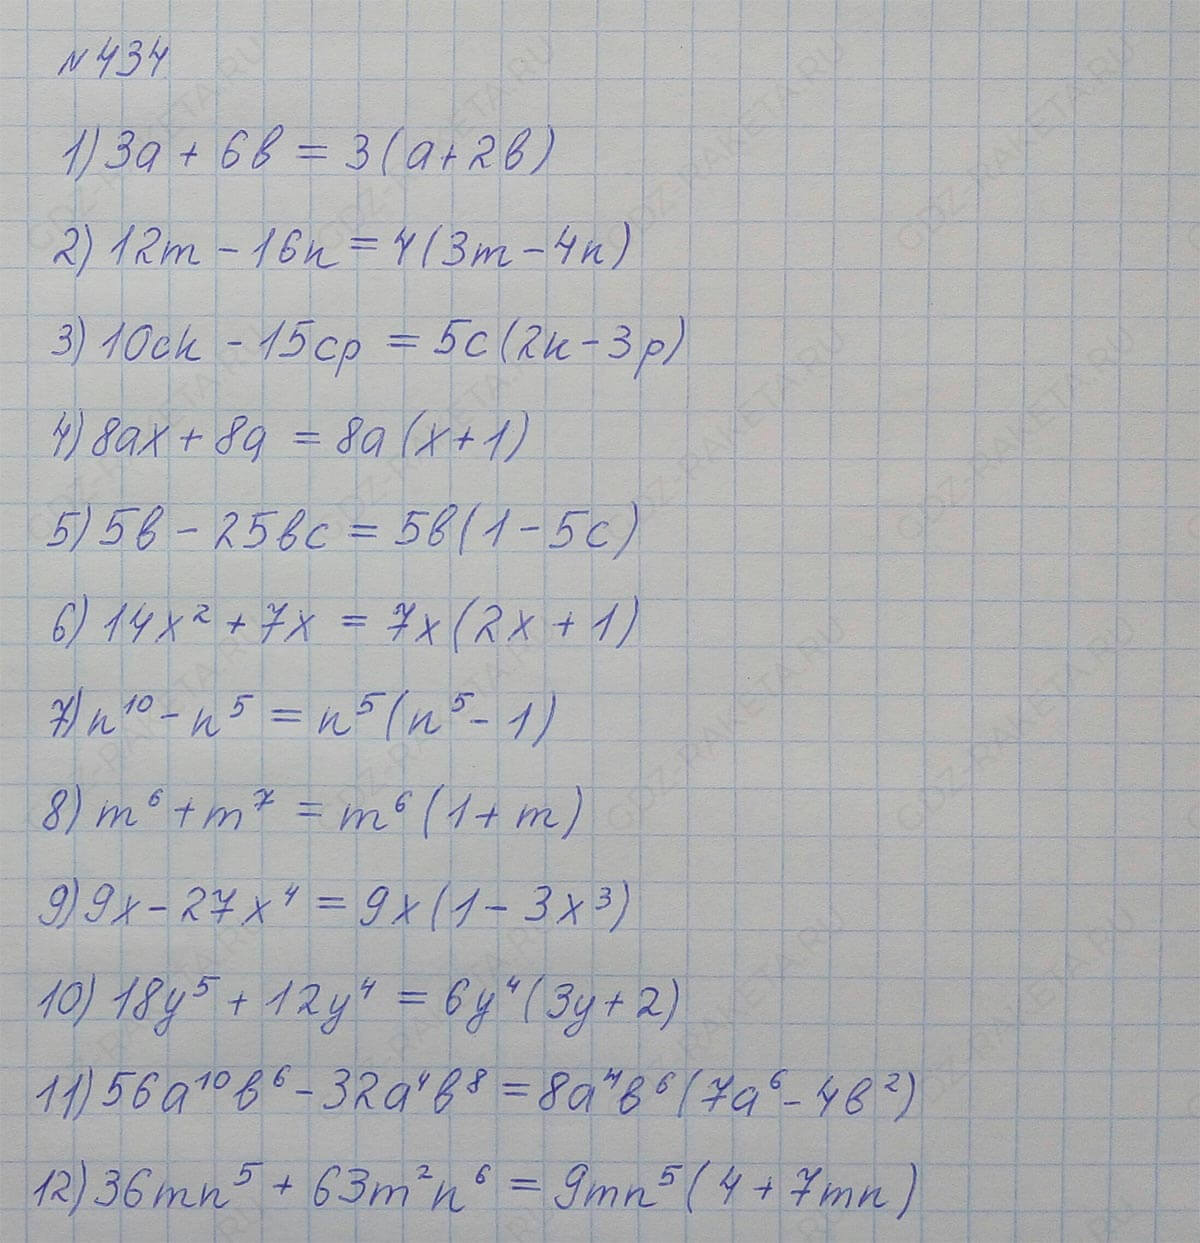 №434
1) 3a + 6b = 3(a+2b)
2) 12m - 16n = 4(3m - 4n)
3) 10ck - 15cp = 5c(2k - 3p)
4) 8ax + 8a = 8a(x+1)
5) 5b - 25bc = 5b(1 - 5c)
6) 14x² + 7x = 7x(2x + 1)
7) n¹⁰ - n⁵ = n⁵(n⁵ - 1)
8) m⁶ + m⁷ = m⁶(1 + m)
9) 9x - 27x⁴ = 9x(1 - 3x³)
10) 18y⁵ + 12y⁴ = 6y⁴(3y + 2)
11) 56a¹⁰b⁶ - 32a⁴b⁸ = 8a⁴b⁶(7a⁶ - 4b²)
12) 36mn⁵ + 63m²n⁶ = 9mn⁵(4 + 7mn)
GDZ-RAKETA.RU